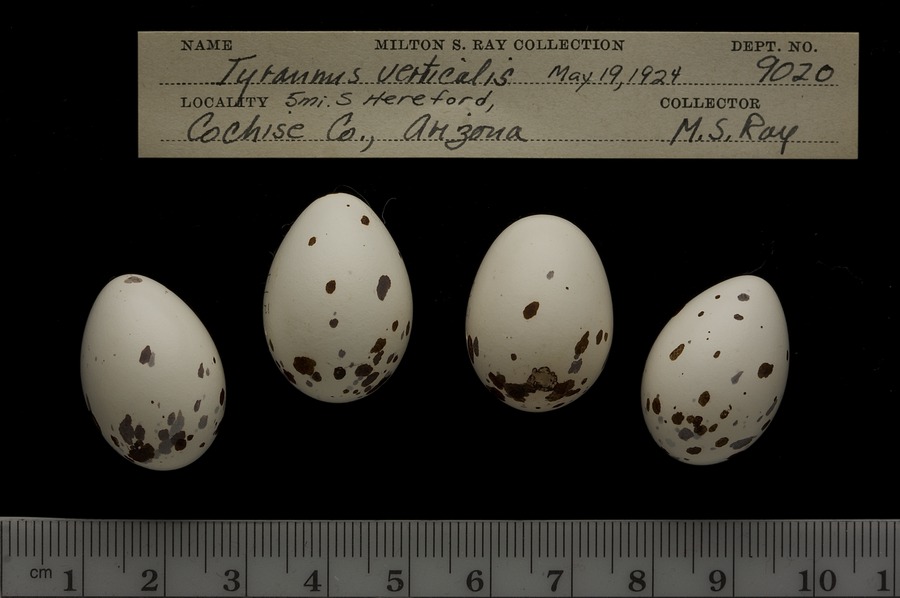 NAME MILTON S. RAY COLLECTION DEPT. NO.
Tyrannus verticalis May 19, 1924 9020
LOCALITY 5mi. S Hereford, COLLECTOR
Cochise Co., Arizona M.S. Ray
cm 1 2 3 4 5 6 7 8 9 10 1